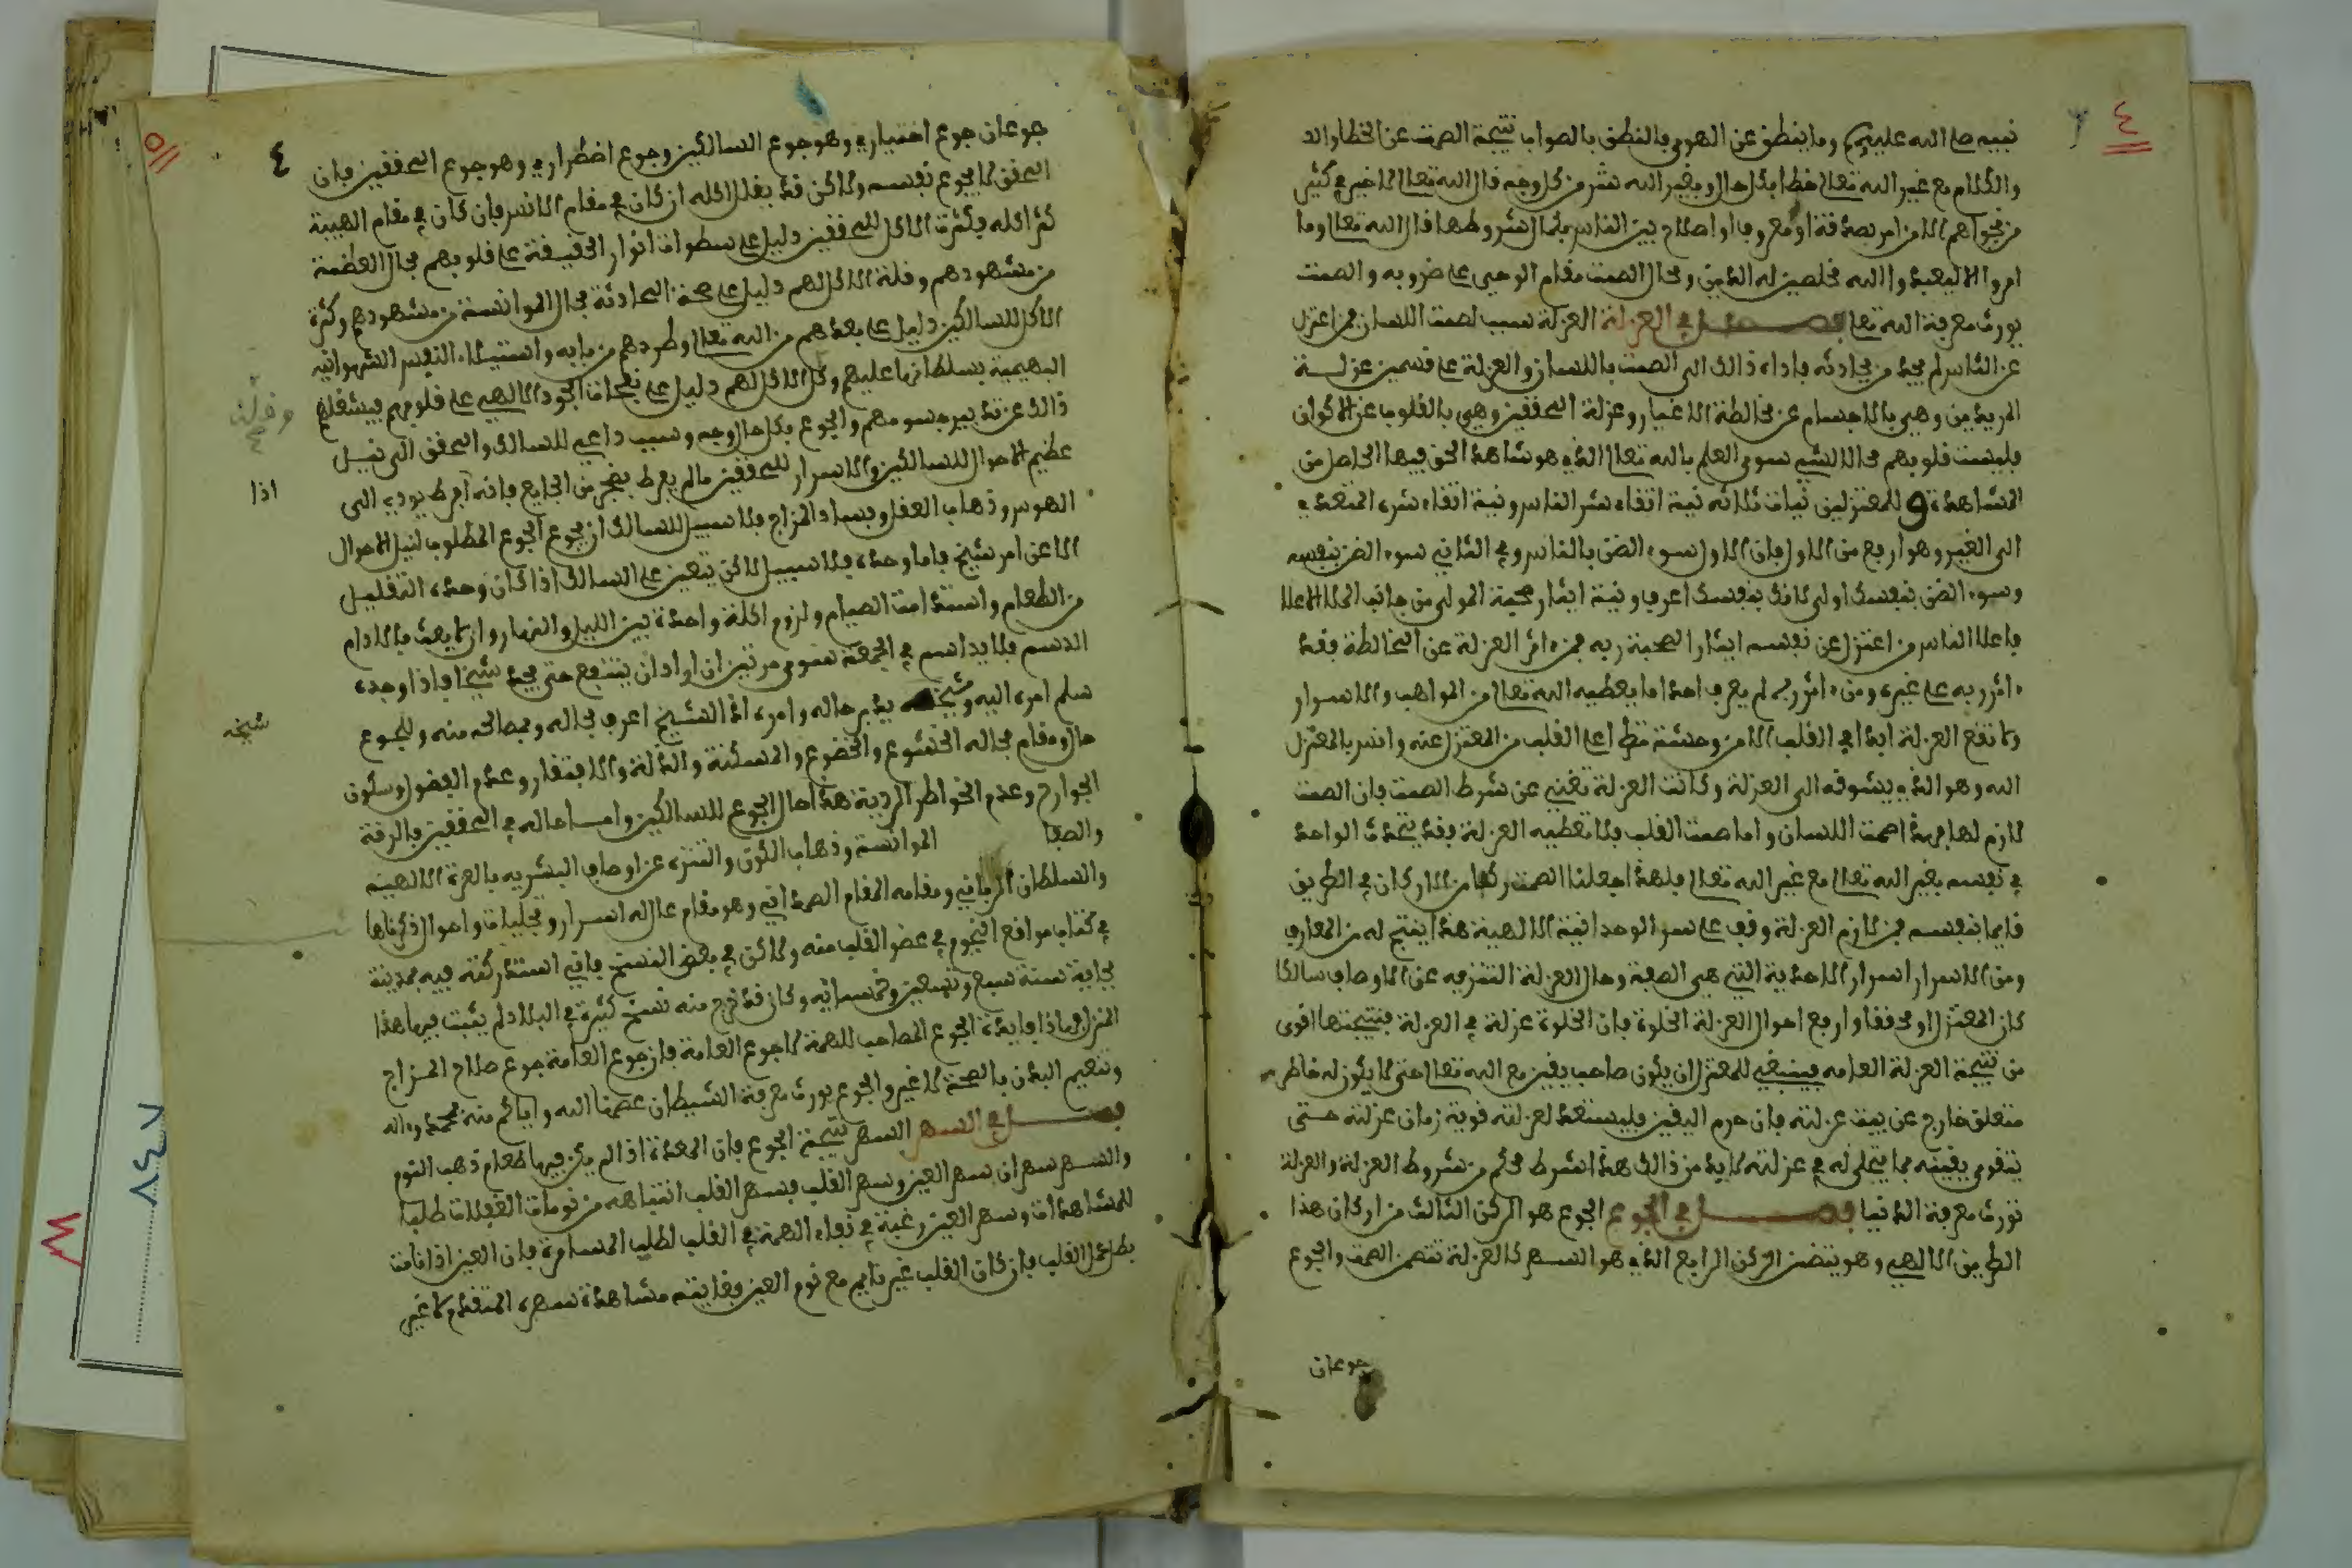 ٤
٣
نبيه صلى الله عليه وسلم وما ينطق عن الهوى فالنطق بالصواب نتيجة الصمت عن الخطا والد
والكلام مع غير الله تعالى خطا بكل حال وبغير الله شر من كل وجه قال الله تعالى لا خير في كثير
من نجواهم الا من امر بصدقة او معروف او اصلاح بين الناس بكمال شروطها قال الله تعالى وما
امروا الا ليعبدوا الله مخلصين له الدين وحال الصمت مقام الوحي على ضروبه والصمت
يورث معرفة الله تعالى فصل في العزلة العزلة سبب لصمت اللسان فمن اعتزل
عن الناس لم يجد من يحادثه فاداه ذالك الى الصمت باللسان والعزلة على قسمين عزلة
المريدين وهي بالاجسام عن مخالطة الاغيار وعزلة المحققين وهي بالقلوب عن الاكوان
فليست قلوبهم محالا لشيء سوى العلم بالله تعالى الذي هو شاهد الحق فيها الحاصل من
المشاهدة وللمعتزلين نيات ثلاثه نية اتقاء شر الناس ونية اتقاء شره المتعدي
الى الغير وهو ارفع من الاول فان الاول سوء الضن بالناس وفي الثاني سوء الضن بنفسه
وسوء الضن بنفسك اولى لانك بنفسك اعرف ونية ايثار صحبة المولى من جانب الملا الاعلا
فاعلا الناس من اعتزل عن نفسه ايثارا لصحبة ربه فمن ءاثر العزلة عن المخالطة فقد
ءاثر ربه على غيره ومن ءاثر ربه لم يعرف احد ما يعطيه الله تعالى من المواهب والاسرار
ولا تقع العزلة ابدا في القلب الا من وحشة تطرا على القلب من المعتزل عنه وانس بالمعتزل
اليه وهو الذي يشوقه الى العزلة وكانت العزلة تغني عن شرط الصمت فان الصمت
لازم لها فهذا صمت اللسان واما صمت القلب فلا تعطيه العزلة فقد يتحدث الواحد
في نفسه بغير الله تعالى مع غير الله تعالى فلهذا جعلنا الصمت ركنا من الاركان في الطريق
قايما بنفسه فمن لازم العزلة وقف على سر الوحدانية الالهية هذا ينتج له من المعارف
ومن الاسرار اسرار الاحدية التي هي الصفة وحال العزلة التنزيه عن الاوصاف سالكا
كان المعتزل او محققا وارفع احوال العزلة الخلوة فان الخلوة عزلة في العزلة فنتيجتها اقوى
من نتيجة العزلة العامه فينبغي للمعتزل ان يكون صاحب يقين مع الله تعالى حتى لا يكون له خاطر
متعلق خارج عن بيت عزلته فان حرم اليقين فليستعد لعزلته قوته زمان عزلته حتى
يتقوى يقينه بما يتجلى له في عزلته لابد من ذالك هذا شرط محكم من شروط العزلة والعزلة
تورث معرفة الدنيا فصل في الجوع الجوع هو الركن الثالث من اركان هذا
الطريق الالهي وهو يتضمن الركن الرابع الذي هو السهر كالعزلة تتضمن الصمت والجوع
جوعان
٥
٤
جوعان جوع اختياري وهو جوع السالكين وجوع اضطراري وهو جوع المحققين فان
المحقق لا يجوع نفسه ولاكن قد يقلل اكله ان كان في مقام الانس فان كان في مقام الهيبة
كثر اكله فكثرة الاكل للمحققين دليل على سطوات انوار الحقيقة على قلوبهم بحال العظمة
من مشهودهم وقلة الاكل لهم دليل على صحة المحادثة بحال الموانسة من مشهودهم وكثرة
الاكل للسالكين دليل على بعدهم من الله تعالى وطردهم من بابه واستيلاء النفس الشهوانيه
البهيمية بسلطانها عليهم وقل الاكل لهم دليل على نفحات الجود الالهي على قلوبهم فيشغلهم
وقلة
ذالك عن تدبير جسومهم والجوع بكل حال ووجه وسبب داعي للسالك والمحقق الى نيل
عظيم الاحوال للسالكين والاسرار للمحققين ما لم يفرط بضجر من الجايع فانه افرط يودي الى
اذا
الهوس وذهاب العقل وفساد المزاج فلا سبيل للسالك ان يجوع الجوع المطلوب لنيل الاحوال
الا عن امر شيخ فاما وحده فلا سبيل لاكن يتعين على السالك اذا كان وحده التقليل
من الطعام واستدامة الصيام ولزوم اكلة واحدة بين الليل والنهار وان يغب بالادام
الدسم فلا يداسم في الجمعة سوى مرتين ان اراد ان ينتفع حتى يجد شيخا فاذا وجده
سلم امره اليه وشيخه يدبر حاله وامره اذ الشيخ اعرف بحاله وبمصالحه منه وللجوع
شيخه
حال ومقام فحاله الخشوع والخضوع والمسكنة والذلة والافتقار وعدم الفضول وسكون
الجوارح وعدم الخواطر الردية هذا حال الجوع للسالكين واما حاله في المحققين فالرقة
والصفا الموانسة وذهاب الكون والتنزه عن اوصاف البشريه بالعزة الالهية
والسلطان الرباني ومقامه المقام الصمداني وهو مقام عال له اسرار وتجليات واحوال ذكرناها
في كتاب مواقع النجوم في عضو القلب منه ولاكن في بعض النسخ فاني استدركته فيه بمدينة
بجاية سنة سبع وتسعين وخمسمائه وكان قد خرج منه نسخ كثيرة في البلاد لم يثبت فيها هذا
المنزل فهاذا فايدة الجوع المصاحب للهمة لا جوع العامة فان جوع العامة جوع صلاح المزاج
وتنعيم البدن بالصحة لا غير والجوع يورث معرفة الشيطان عصمنا الله واياكم منه بمحمد واله
فصل في السهر السهر نتيجة الجوع فان المعدة اذا لم يكن فيها طعام ذهب النوم
والسهر سهران سهر العين وسهر القلب فسهر القلب انتباهه من نومات الغفلات طلبا
للمشاهدات وسهر العين رغبة في بقاء الهمة في القلب لطلب المسامرة فان العين اذا نامت
بطل عمل القلب فان كان القلب غير نايم مع نوم العين فغايته مشاهدة سهره المتقدم لا غير
٨٤٧